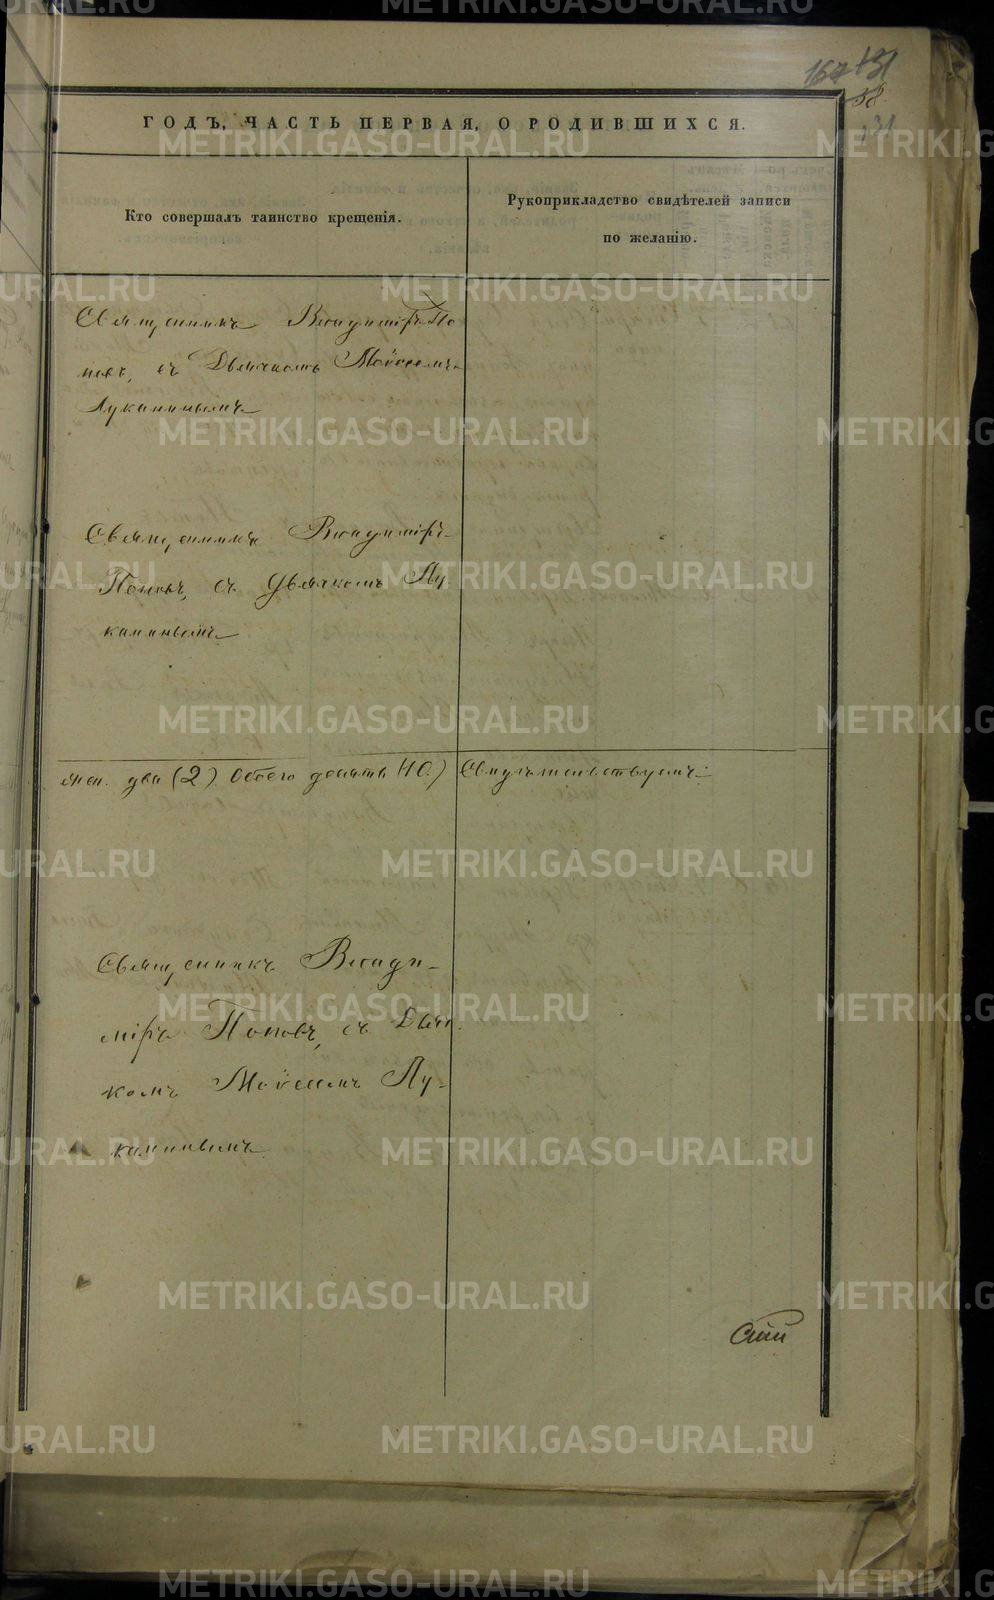 167 131
38
131
ГОДЪ, ЧАСТЬ ПЕРВАЯ, О РОДИВШИХСЯ.
Кто совершалъ таинство крещенія.
Рукоприкладство свидѣтелей записи
по желанію.
Священникъ Владиміръ По
повъ, съ Дьячкомъ Моѵсеемъ
Луканинымъ
Священникъ Владиміръ
Поповъ, съ Дьячкомъ Лу
канинымъ
жен. два (2) Обоего десять (10.) Свидѣтельствуемъ:
Священникъ Влади-
міръ Поповъ, съ Дьяч
комъ Моѵсеемъ Лу-
канинымъ.
METRIKI.GASO-URAL.RU